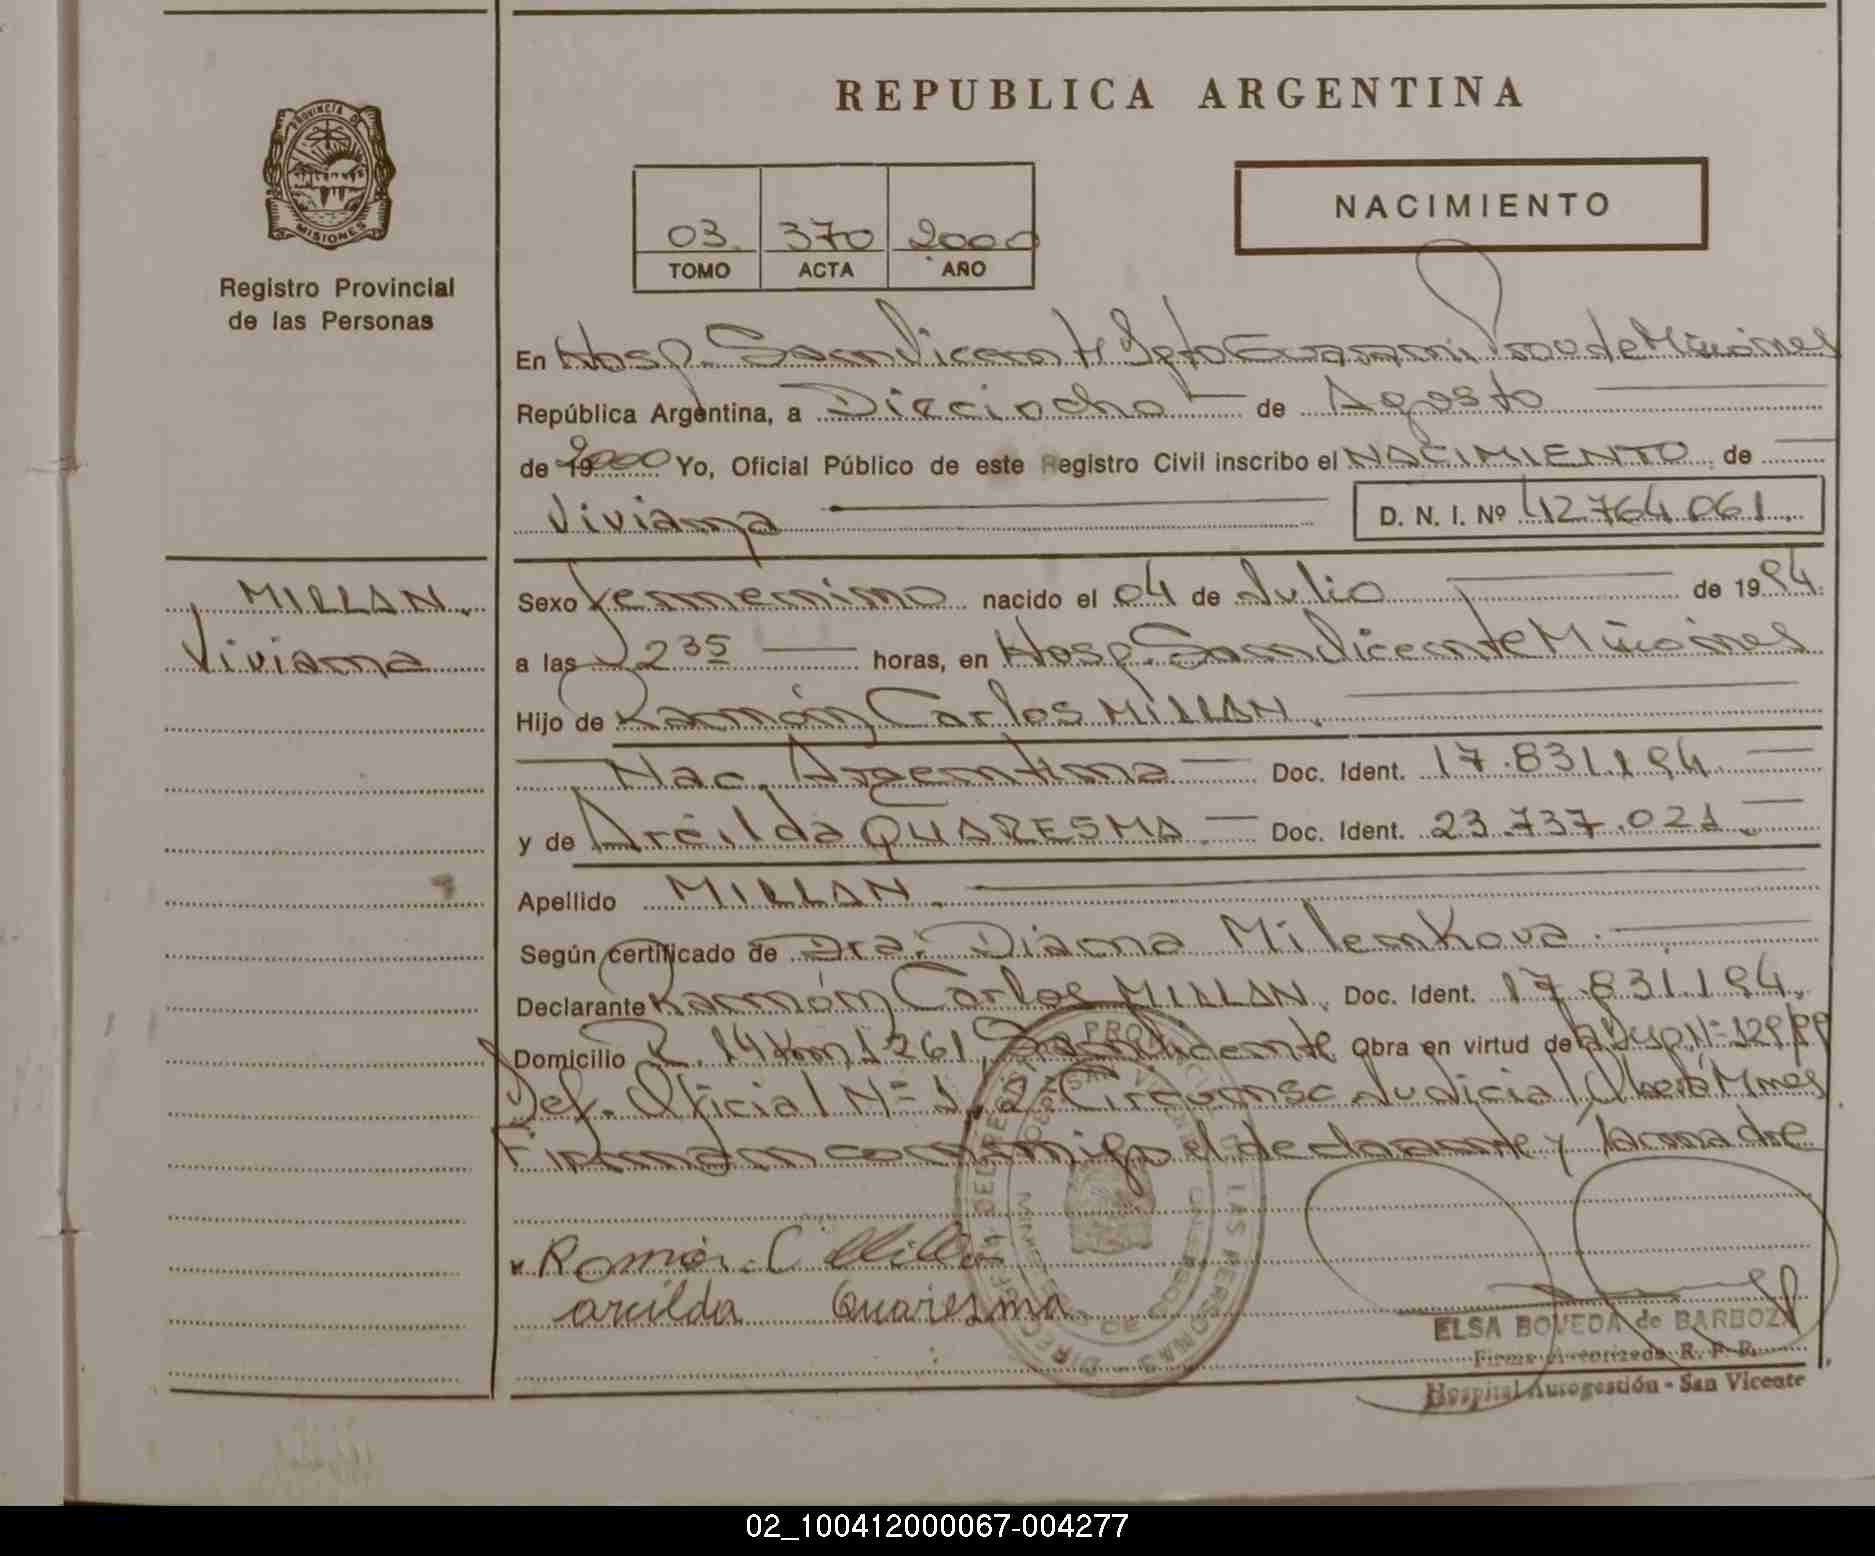 REPUBLICA ARGENTINA
PROVINCIA DE
MISIONES
Registro Provincial
de las Personas
03 370 2000
TOMO ACTA AÑO
NACIMIENTO
En Hosp. San Vicente Dpto Guaraní Prov de Misiones
República Argentina, a Dieciocho de Agosto
de 19 2000 Yo, Oficial Público de este Registro Civil inscribo el NACIMIENTO de
Viviana D. N. I. Nº 42764061
MILLAN, Viviana
Sexo femenino nacido el 04 de Julio de 1994
a las 235 horas, en Hosp. San Vicente Misiones
Hijo de Ramón Carlos MILLAN.
Nac. Argentina Doc. Ident. 17.831.194
y de Arcilda QUARESMA Doc. Ident. 23.737.021
Apellido MILLAN.
Según certificado de Dra. Diana Milenkova
Declarante Ramón Carlos MILLAN, Doc. Ident. 17.831.194
Domicilio R. 14 Km 1261, San Vicente Obra en virtud de Disp. Nº 129/99
Def. Oficial Nº 1, 2º Circunsc Judicial Oberá Mnes
Firman conmigo el declarante y la madre
Ramón C Millan
arcilda Quaresma
ELSA BOVEDA de BARBOZA
Firma Autorizada R. P. P.
Hospital Autogestión - San Vicente
02_100412000067-004277